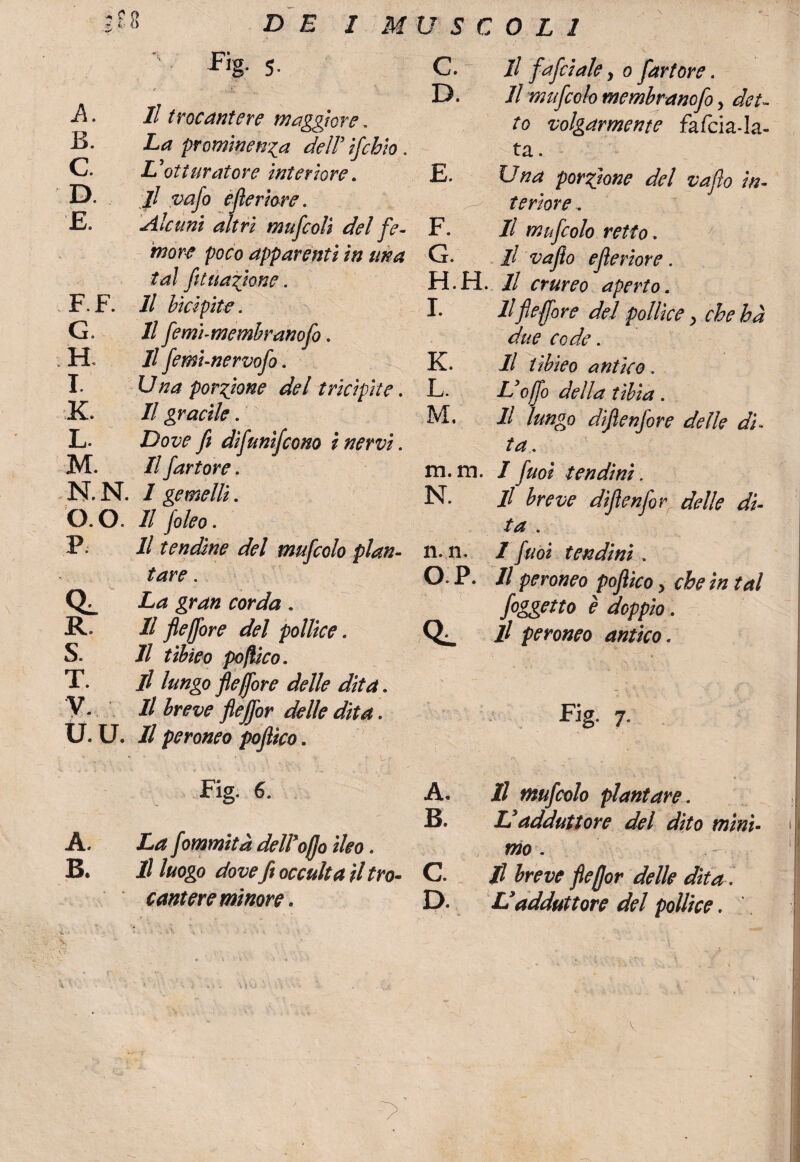 DE I MUSCOLI
Fig. 5.
A. Il trocantere maggiore.
B. La prominenza dell' ischio.
C. L'otturatore interiore.
D. Il vaſo eſteriore.
E. Alcuni altri muſcoli del fe-
more poco apparenti in una
tal ſituazione.
F. F. Il bicipite.
G. Il ſemi-membranoſo.
H. Il ſemi-nervoſo.
I. Una porzione del tricipite.
K. Il gracile.
L. Dove ſi diſuniſcono i nervi.
M. Il ſartore.
N. N. I gemelli.
O. O. Il ſoleo.
P. Il tendine del muſcolo plan-
tare.
Q. La gran corda.
R. Il fleſſore del pollice.
S. Il tibieo poſtico.
T. Il lungo fleſſore delle dita.
V. Il breve fleſſor delle dita.
U. U. Il peroneo poſtico.
Fig. 6.
A. La ſommità dell'oſſo ileo.
B. Il luogo dove ſi occulta il tro-
cantere minore.
C. Il faſciale, o ſartore.
D. Il muſcolo membranoſo, det-
to volgarmente faſcia-la-
ta.
E. Una porzione del vaſto in-
teriore.
F. Il muſcolo retto.
G. Il vaſto eſteriore.
H. H. Il crureo aperto.
I. Il fleſſore del pollice, che hà
due code.
K. Il tibieo antico.
L. L'oſſo della tibia.
M. Il lungo diſtenſore delle di-
ta.
m. m. I ſuoi tendini.
N. Il breve diſtenſor delle di-
ta.
n. n. I ſuoi tendini.
O. P. Il peroneo poſtico, che in tal
ſoggetto è doppio.
Q. Il peroneo antico.
Fig. 7.
A. Il muſcolo plantare.
B. L'adduttore del dito mini-
mo.
C. Il breve fleſſor delle dita.
D. L'adduttore del pollice.